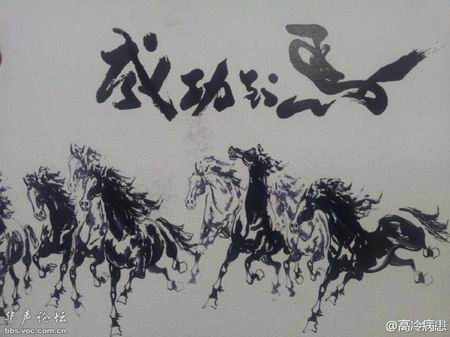 马到成功
华声论坛
bbs.voc.com.cn
@高冷病患